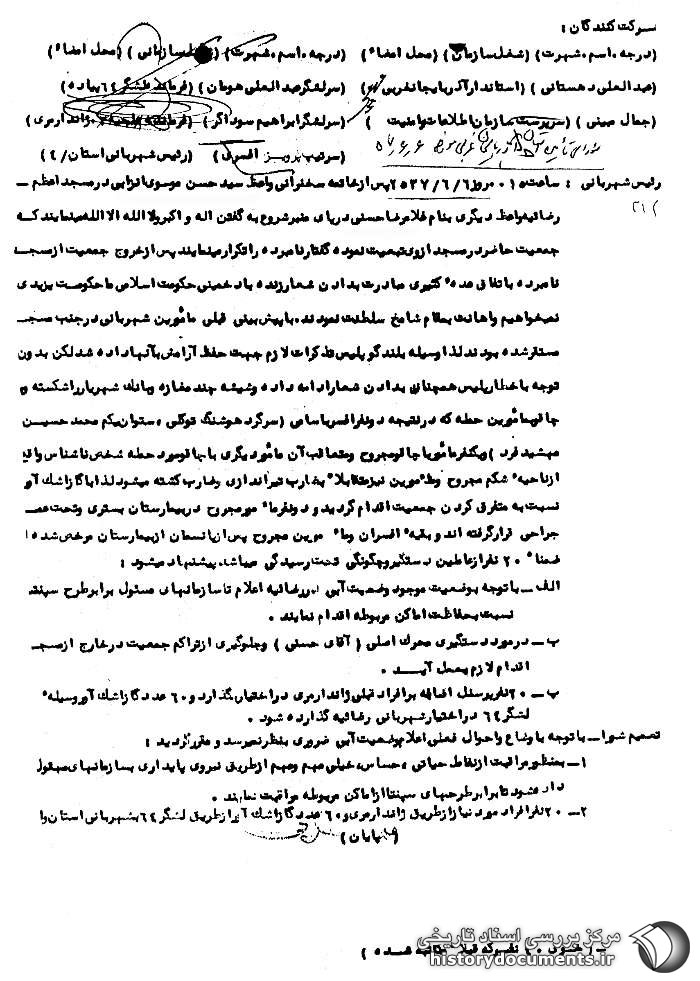 شرکت کنندگان :
(درجه ، اسم ، شهرت) (شغل سازمانی) (محل امضاء) (درجه ، اسم ، شهرت) (شغل سازمانی) (محل امضاء)
(عبدالعلی دهستانی) (استاندار آذربایجانغربی) (سرلشگر عبدالعلی هومان) (فرمانده لشگر ۶۴ پیاده)
(جمال مبینی) (سرپرست سازمان اطلاعات و امنیت) (سرلشگر ابراهیم سوداگر) (فرمانده ژاندارمری)
(سرتیپ پرویز افسری) (رئیس شهربانی استان/۴)
رئیس شهربانی : ساعت ۰۱ مروز ۲۵۳۷/۶/۶ پس از خاتمه سخنرانی واعظ سید حسن موسوی در مسجد اعظم ـ
رضائیه واعظ دیگری بنام غلامرضا حسنی در پای منبر شروع به گفتن اله و اکبر ولا اله الا اله مینمایند که
جمعیت حاضر در مسجد از وی تبعیت نموده گفتار نامبرده را تکرار مینمایند پس از خروج جمعیت از مسجد
نامبرده باتفاق عده کثیری مبادرت بدادن شعار زنده باد خمینی حکومت اسلامی ما حکومت یزیدی
نمیخواهیم واهانت بمقام شامخ سلطنت نمودند ، با پیش بینی قبلی مأمورین شهربانی در جنب مسجد
مستقر شده بودند لذا وسیله بلندگو پلیس تذکرات لازم جهت حفظ آرامش بآنها داده شد لکن بدون
توجه با خطار پلیس همچنان بدادن شعار ادامه داده و شیشه چند مغازه وبانک شهریار را شکسته و
چاقو مأمورین حمله که در نتیجه دو نفر افسر باسامی (سرگرد هوشنگ توکلی ، ستوان یکم محمد حسین
مهشید فرد) ویکنفر مأمور با چاقو مجروح ومتعاقب آن مأمور دیگری با چاقو مورد حمله شخص ناشناس واقع
از ناحیه شکم مجروح ومأمورین نیز متقابلا بضارب تیراندازی وضارب کشته میشود لذا با گاز اشک آور
نسبت به متفرق کردن جمعیت اقدام گردید و دو نفر مامور مجروح در بیمارستان بستری وتحت عمل
جراحی قرار گرفته اند و بقیه افسران ومامورین مجروح پس از پانسمان از بیمارستان مرخص شده
ضمنا ۲۰ نفر از عاملین دستگیر وچگونگی تحت رسیدگی میباشد ، پیشنهاد میشود :
الف ـ با توجه بوضعیت موجود وضعیت آبی در رضائیه اعلام تا سازمانهای مسئول برابر طرح سپنتا
نسبت بحفاظت اماکن مربوطه اقدام نمایند .
ب ـ در مورد دستگیری محرک اصلی (آقای حسنی) وجلوگیری از تراکم جمعیت در خارج از مسجد
اقدام لازم بعمل آیـد .
پ ـ ۲۰ نفر پرسنل اضافه بر افراد قبلی ژاندارمری در اختیار بگذارد و ۶۰ عدد گاز اشک آور وسیله
لشگر ۶۴ در اختیار شهربانی رضائیه گذارده شود .
تصمیم شورا ـ با توجه باوضاع واحوال فعلی اعلام وضعیت آبی ضروری بنظر نمیرسد و مقرر گردید :
۱ ـ بمنظور مراقبت از نقاط حیاتی ، حساس ، خیلی مهم ومهم از طریق نیروی پایداری بسازمانهای مسئول
داده شود تا برابر طرحهای سپنتا از اماکن مربوطه مراقبت نمایند .
۲ ـ ۲۰ نفر افراد مورد نیاز از طریق ژاندارمری و ۶۰ عدد گاز اشک آور از طریق لشگر ۶۴ بشهربانی استان
(پایان)
مرکز بررسی اسناد تاریخی
historydocuments.ir